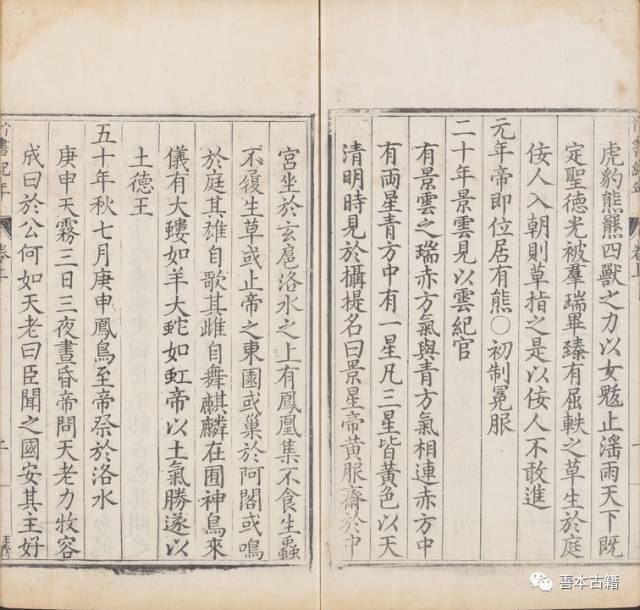 虎豹熊羆四獸之力以女魃止淫雨天下既
定聖徳光被羣瑞畢臻有屈軼之草生於庭
佞人入朝則草指之是以佞人不敢進
元年帝即位居有熊○初制冕服
二十年景雲見以雲紀官
有景雲之瑞赤方氣與青方氣相連赤方中
有兩星青方中有一星凡三星皆黄色以天
清明時見於攝提名曰景星帝黄服齋於中
宮坐於玄扈洛水之上有鳳凰集不食生蟲
不履生草或止帝之東園或巢於阿閣或鳴
於庭其雄自歌其雌自舞麒麟在囿神鳥來
儀有大螻如羊大螾如虹帝以土氣勝遂以
土德王
五十年秋七月庚申鳳鳥至帝祭於洛水
庚申天霧三日三夜晝昏帝問天老力牧容
成曰於公何如天老曰臣聞之國安其主好
竹書紀年
卷上
善本古籍